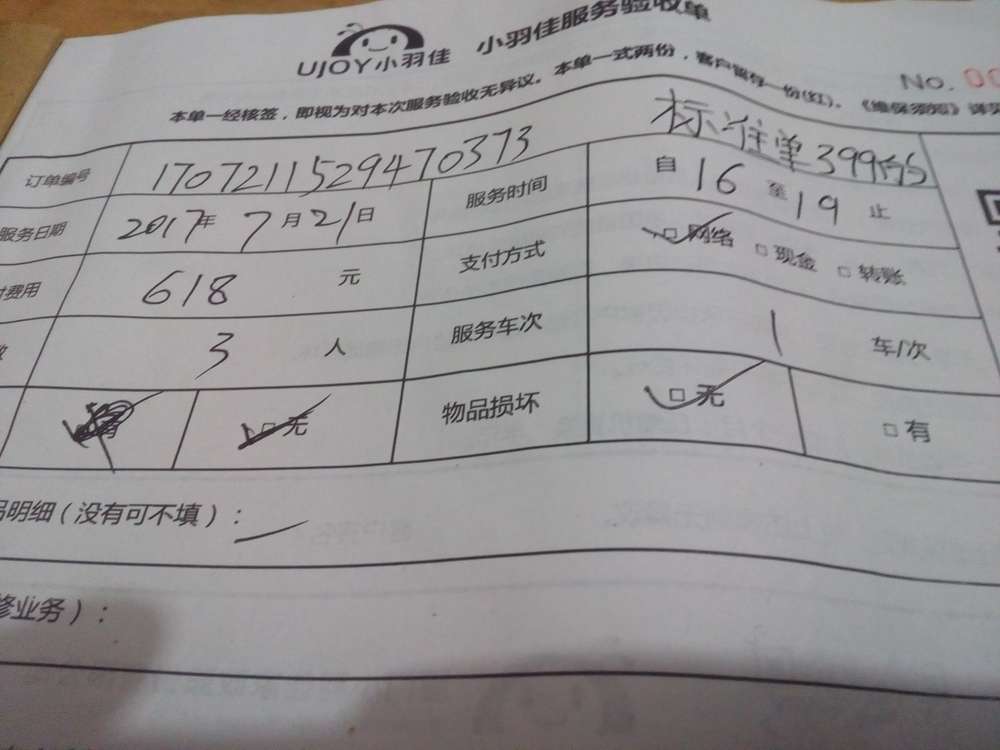 UJOY小羽佳 小羽佳服务验收单
No. 00
本单一经核签，即视为对本次服务验收无异议。本单一式两份，客户留存一份(红)。《维保须知》详见
标准单399
订单编号 1707211529470373 服务时间 自 16 至 19 止
服务日期 2017年 7月21日 支付方式 网络 □现金 □转账
费用 618 元
3 人 服务车次 1 车/次
有 □无 物品损坏 □无 □有
明细（没有可不填）：
修业务）：